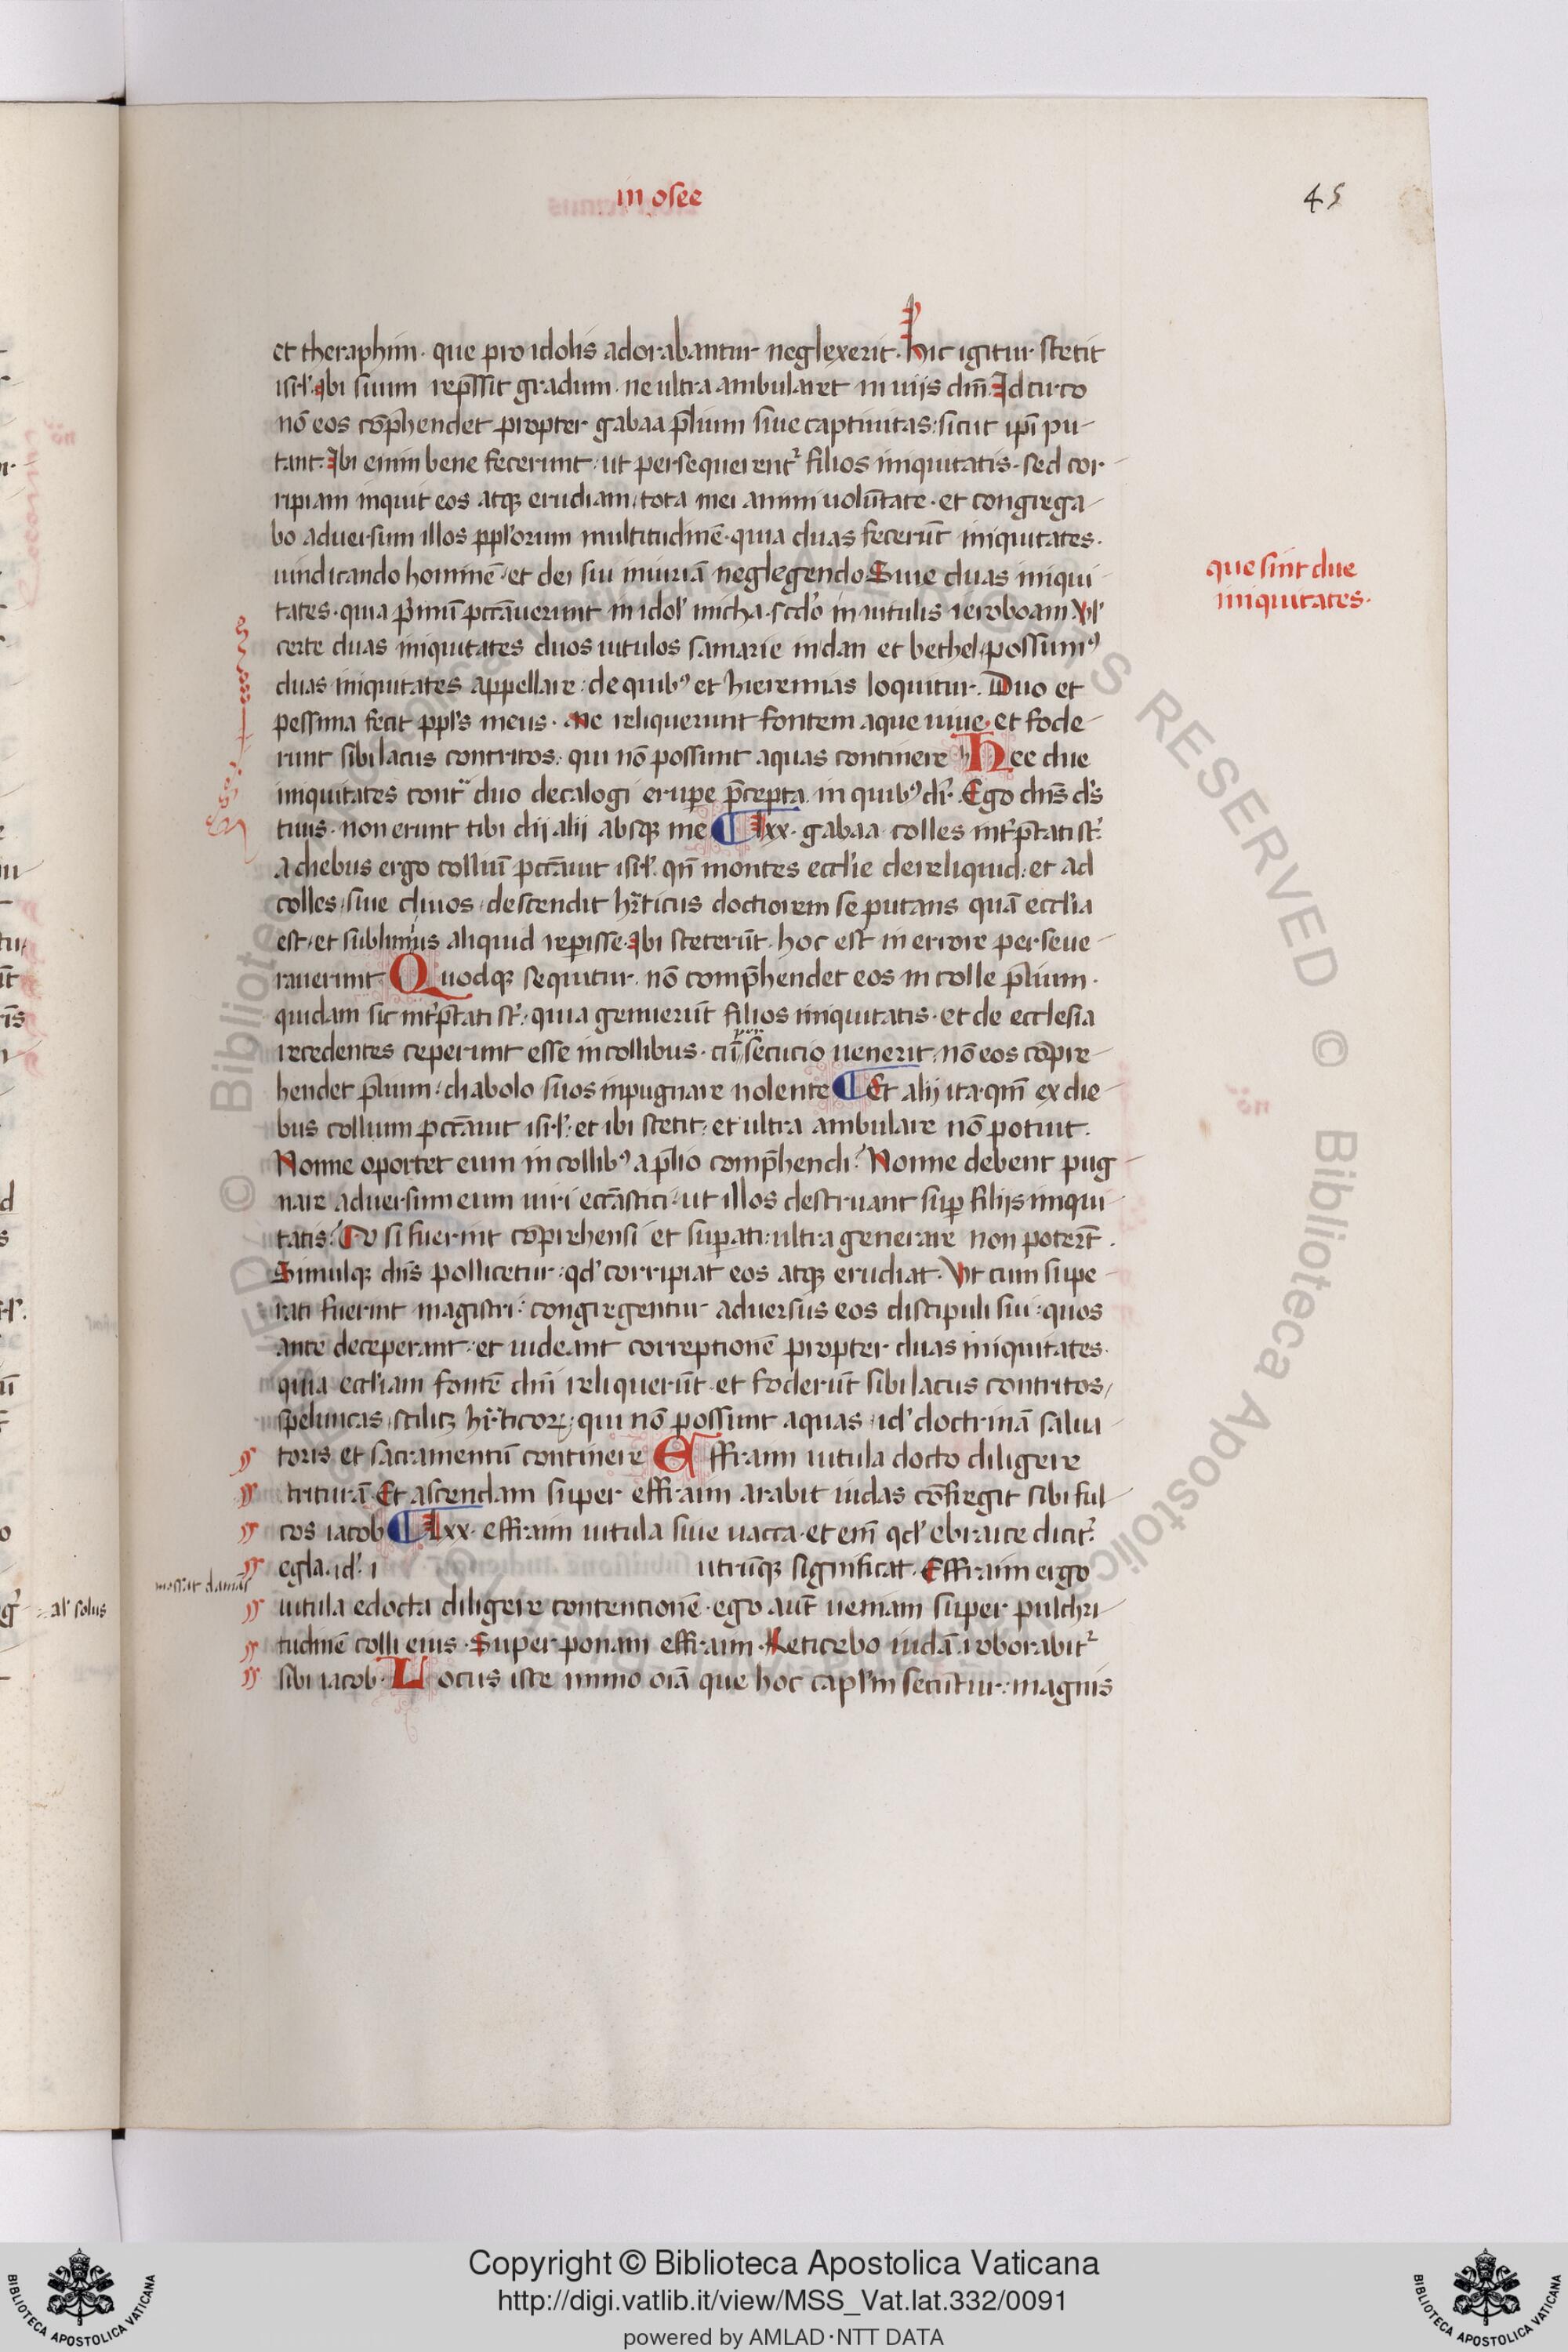 in osee
45
et theraphim. que pro idolis adorabantur neglexerit. hic igitur stetit
isrl'. ibi suum rep̄ssit gradum. ne ultra ambularet in uijs dn̄i. Idcirco
nō eos cōp̄hendet propter gabaa p̄lium siue captiuitas: sicut ip̄i pu-
tant. Ibi enim bene fecerunt: ut persequerent᷑ filios iniquitatis. sed cor-
ripiam inquit eos atqꝫ erudiam: tota mei animi uolūtate. et congrega-
bo aduersum illos ppl'orum multitudinē. quia duas fecerūt iniquitates.
uindicando hominē: et dei sui iniuriā neglegendo. Siue duas iniqui-
tates. quia p̄imū pccāuerunt in idol' micha. scd'o in uitulis ieroboam. Vl'
certe duas iniquitates duos uitulos samarie in dan et bethel possumꝰ
duas iniquitates appellare: de quibꝰ et hieremias loquitur. Duo et
pessima fecit ppl's meus. Me reliquerunt fontem aque uiue. et fode-
runt sibi lacus contritos: qui nō possunt aquas continere Hee due
iniquitates contᵃ duo decalogi erupe p̄cepta. in quibꝰ dr̄. Ego dn̄s d's
tuus. non erunt tibi dij alij absqꝫ me ¶ lxx. gabaa colles int̄p̄tati st̄.
A diebus ergo colliū pccāuit isrl'. qn̄ montes eccl'ie dereliquid: et ad
colles siue cliuos descendit hr̄ticus doctiorem se putans quā eccl'ia
est: et sublimius aliquid rep̄isse. Ibi steterūt. hoc est in errore perseue-
rauerunt Quodqꝫ sequitur. nō comp̄hendet eos in colle p̄lium.
quidam sic int̄p̄tati st̄. quia genuerūt filios iniquitatis. et de ecclesia
recedentes ceperunt esse in collibus. cū per secucio uenerit: nō eos cōpre-
hendet p̄lium: diabolo suos inpugnare nolente ¶ Et alij ita. qm̄ ex die-
bus collium pccāuit isrl'. et ibi stetit: et ultra ambulare nō potuit.
Nonne oportet eum in collibꝰ a p̄lio comp̄hendi? Nonne debent pug-
nare aduersum eum uiri eccāstici: ut illos destruant sup̱ filijs iniqui-
tatis? Qui si fuerint cōprehensi et sup̱ati: ultra generare non poterūt.
Simulqꝫ dn̄s pollicetur: qd' corripiat eos atqꝫ erudiat. Vt cum supe-
rati fuerint magistri: congregentur aduersus eos discipuli sui: quos
ante deceperant: et uideant correptionē propter duas iniquitates.
quia eccl'iam fontē dn̄i reliquerūt. et foderūt sibi lacus contritos,
speluncas scilicꝫ hr̄ticoꝝ: qui nō possunt aquas id' doctrinā salua-
toris et sacramentū continere Effraim uitula docta diligere
trituram. Et ascendam super effraim arabit iudas cōfregit sibi sul-
cos iacob ¶ lxx. effraim uitula siue uacca. et em̄ qd' ebraice dicit᷑
egla. id' i utrūqꝫ significat. Effraim ergo
uitula edocta diligere contentionē. ego aut̄ ueniam super pulchri-
tudinē colli eius. Superponam effraim. Reticebo iudā. roborabit᷑
sibi iacob. Locus iste immo oīa que hoc capl'm secūt̄ur: magnis
que sint due
iniquitates.
al' solus
Copyright © Biblioteca Apostolica Vaticana
http://digi.vatlib.it/view/MSS_Vat.lat.332/0091
powered by AMLAD·NTT DATA
BIBLIOTECA APOSTOLICA VATICANA
BIBLIOTECA APOSTOLICA VATICANA